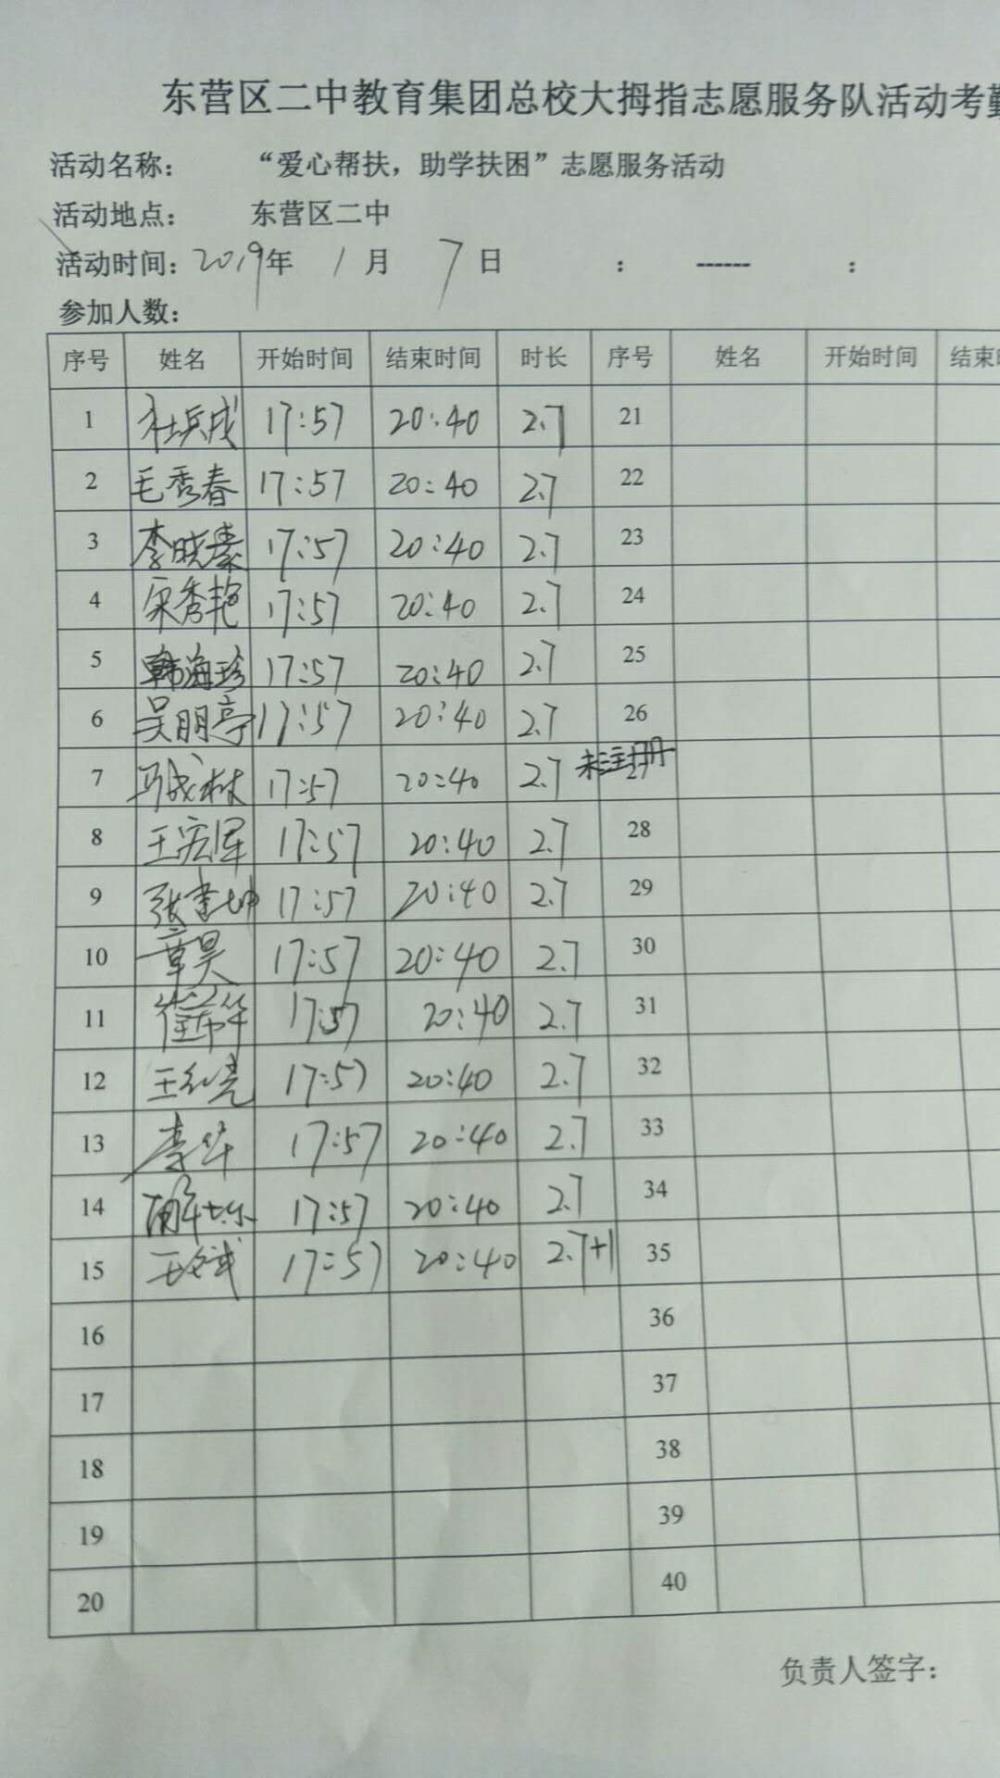 东营区二中教育集团总校大拇指志愿服务队活动考勤
活动名称： “爱心帮扶，助学扶困”志愿服务活动
活动地点： 东营区二中
活动时间：2019年 1月 7日 ： ------ ：
参加人数：
序号 姓名 开始时间 结束时间 时长 序号 姓名 开始时间 结束时
1 杜兵成 17:57 20:40 2.7 21
2 毛秀春 17:57 20:40 2.7 22
3 李晓素 17:57 20:40 2.7 23
4 宋秀艳 17:57 20:40 2.7 24
5 韩海珍 17:57 20:40 2.7 25
6 吴朋亭 17:57 20:40 2.7 26
7 马成林 17:57 20:40 2.7 未注册 27
8 王宏军 17:57 20:40 2.7 28
9 17:57 20:40 2.7 29
10 章昊 17:57 20:40 2.7 30
11 17:57 20:40 2.7 31
12 王红亮 17:57 20:40 2.7 32
13 李华 17:57 20:40 2.7 33
14 17:57 20:40 2.7 34
15 17:57 20:40 2.7+1 35
16 36
17 37
18 38
19 39
20 40
负责人签字：